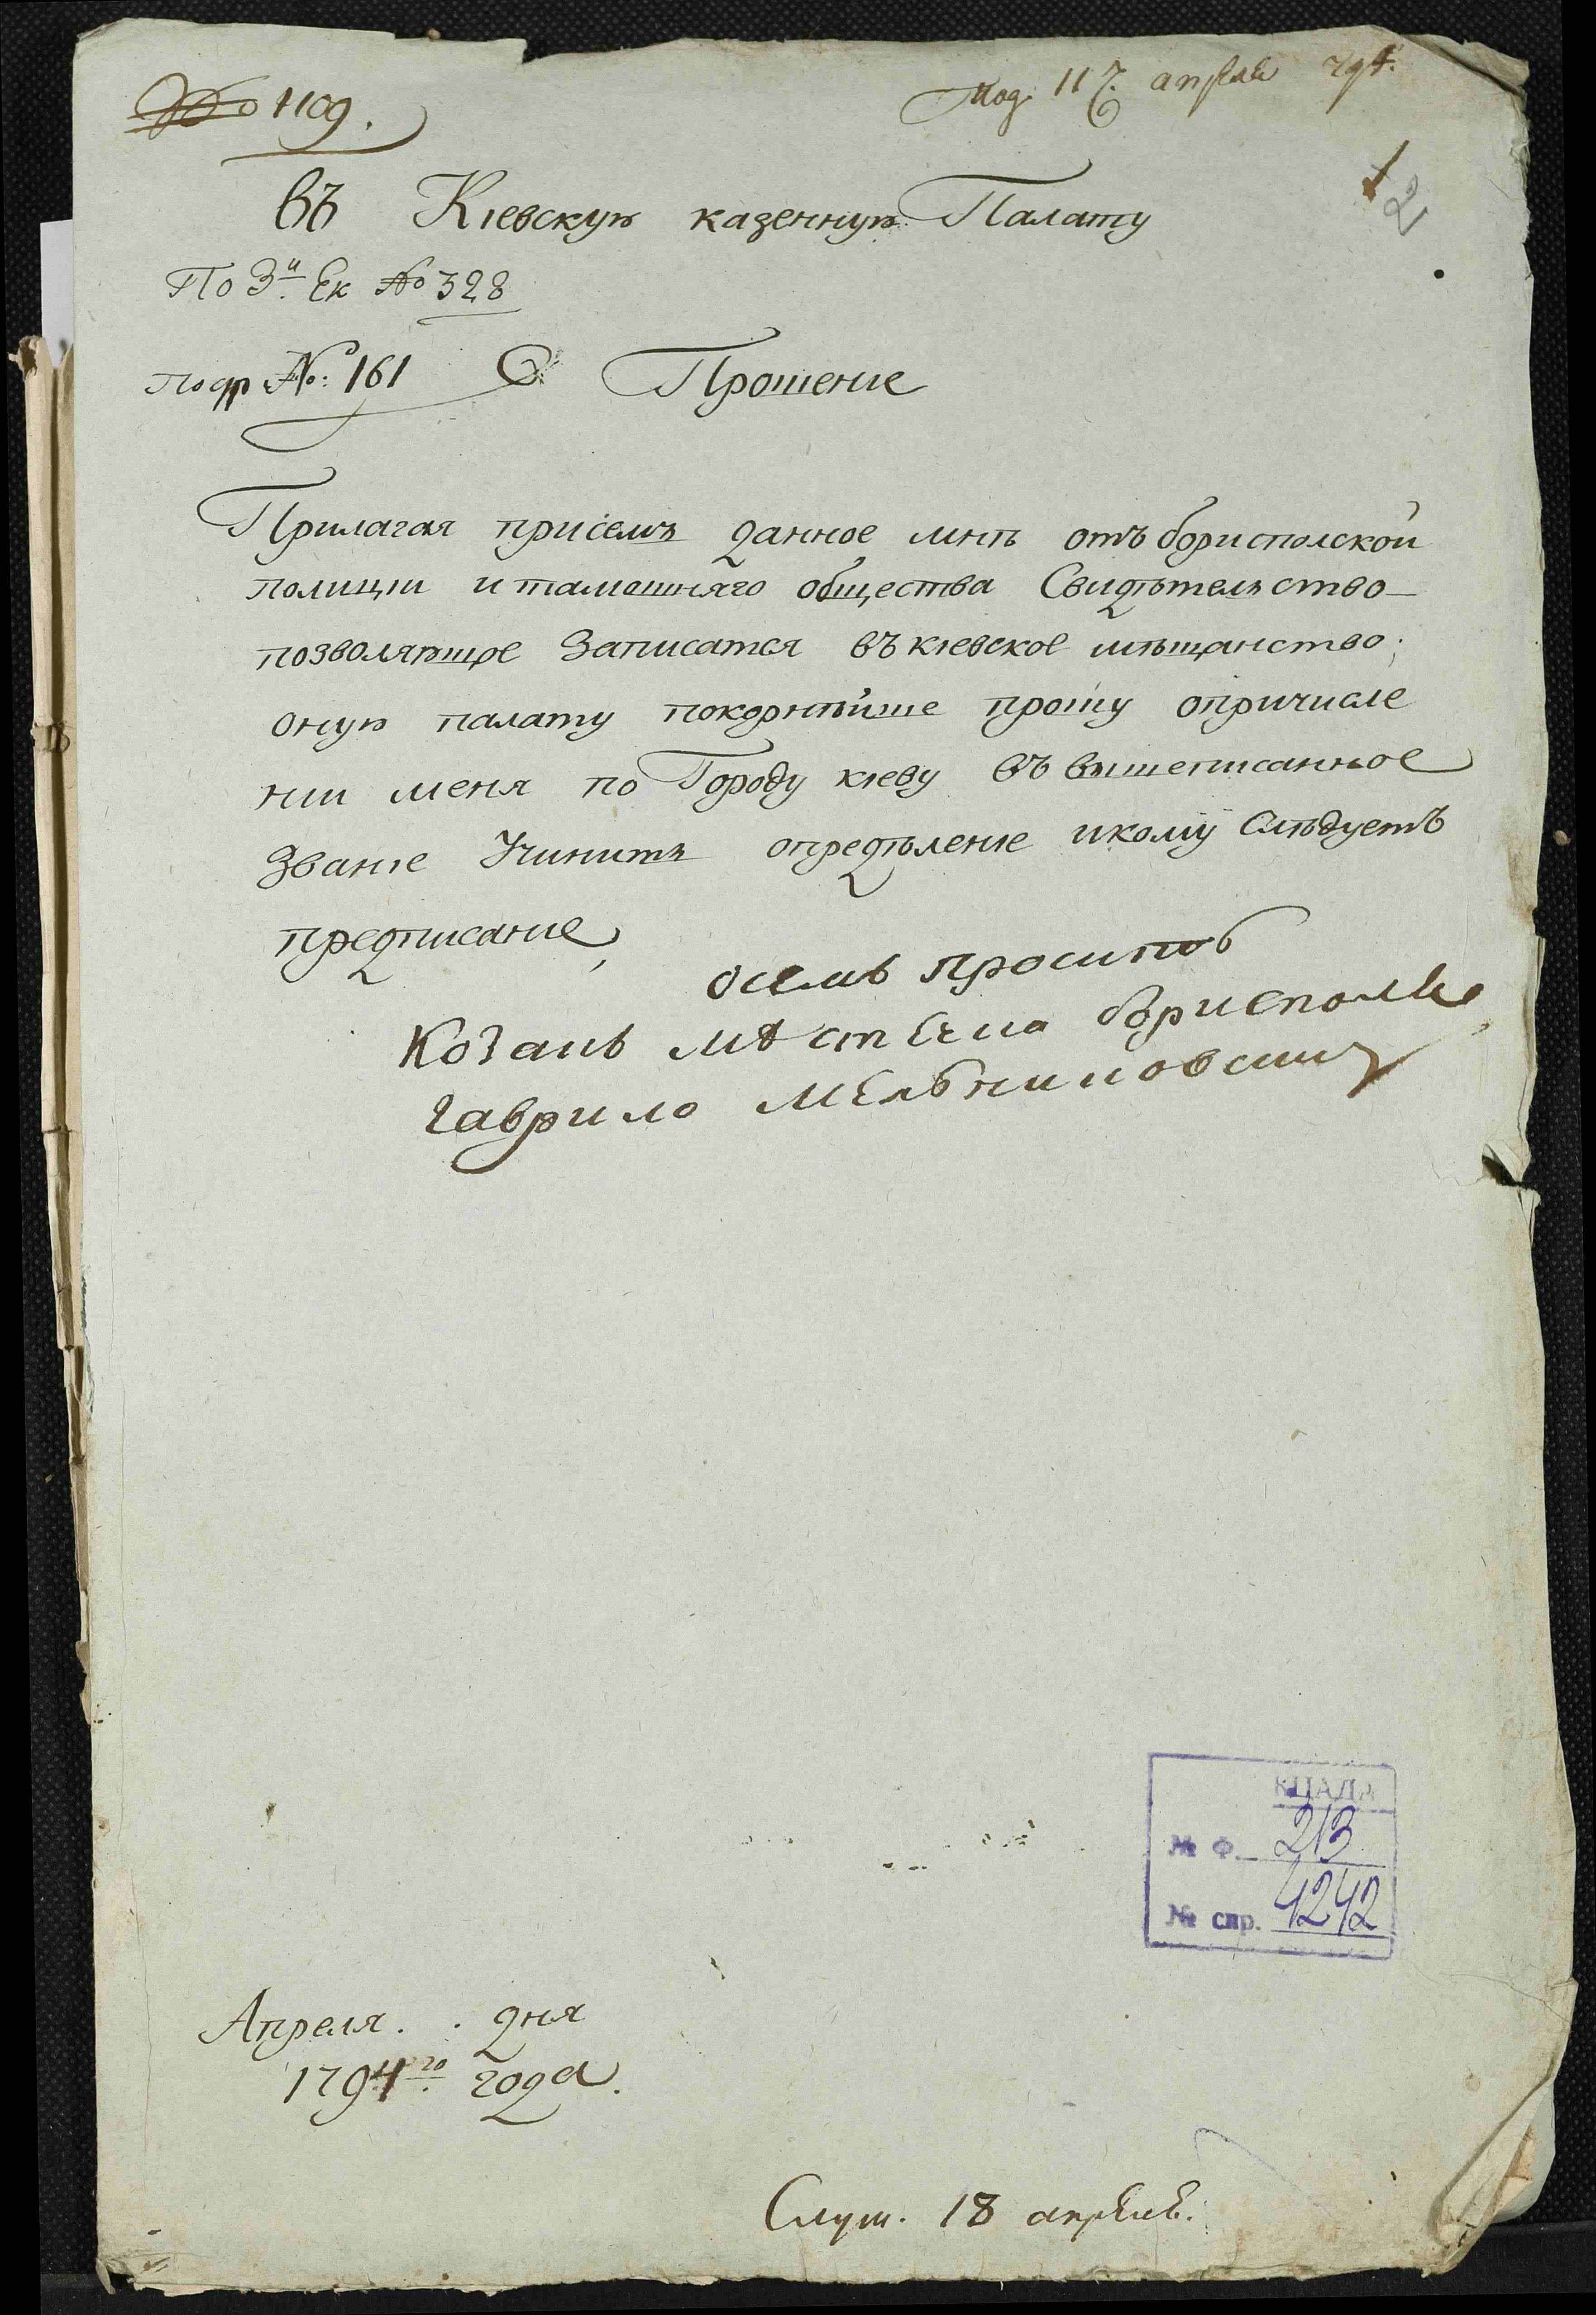 № 1109.
Под. 11 г. апреля 794.
1
2
Въ Кіевскую казенную Палату
По 3й Ек № 328
По др №: 161
Прошеніе
Прилагая присемъ данное мнѣ отъ бориспол­ской
полиціи и тамошняго общества Свидѣтелство
позволяющое Записатся въ кіевское мѣщанство;
оную палату покорнѣйше прошу опричисле
ніи меня по Городу кіеву въ вышеписанное
Званіе Учинить опредѣленіе икому Слѣдуетъ
предписаніе,
осемъ просилъ
Козакъ местечка борисполя
гаврило мельниковский
КЦАДА
№ Ф. 213
№ спр. 4242
Апреля . . дня
1794го года.
Слуш. 18 апреля.